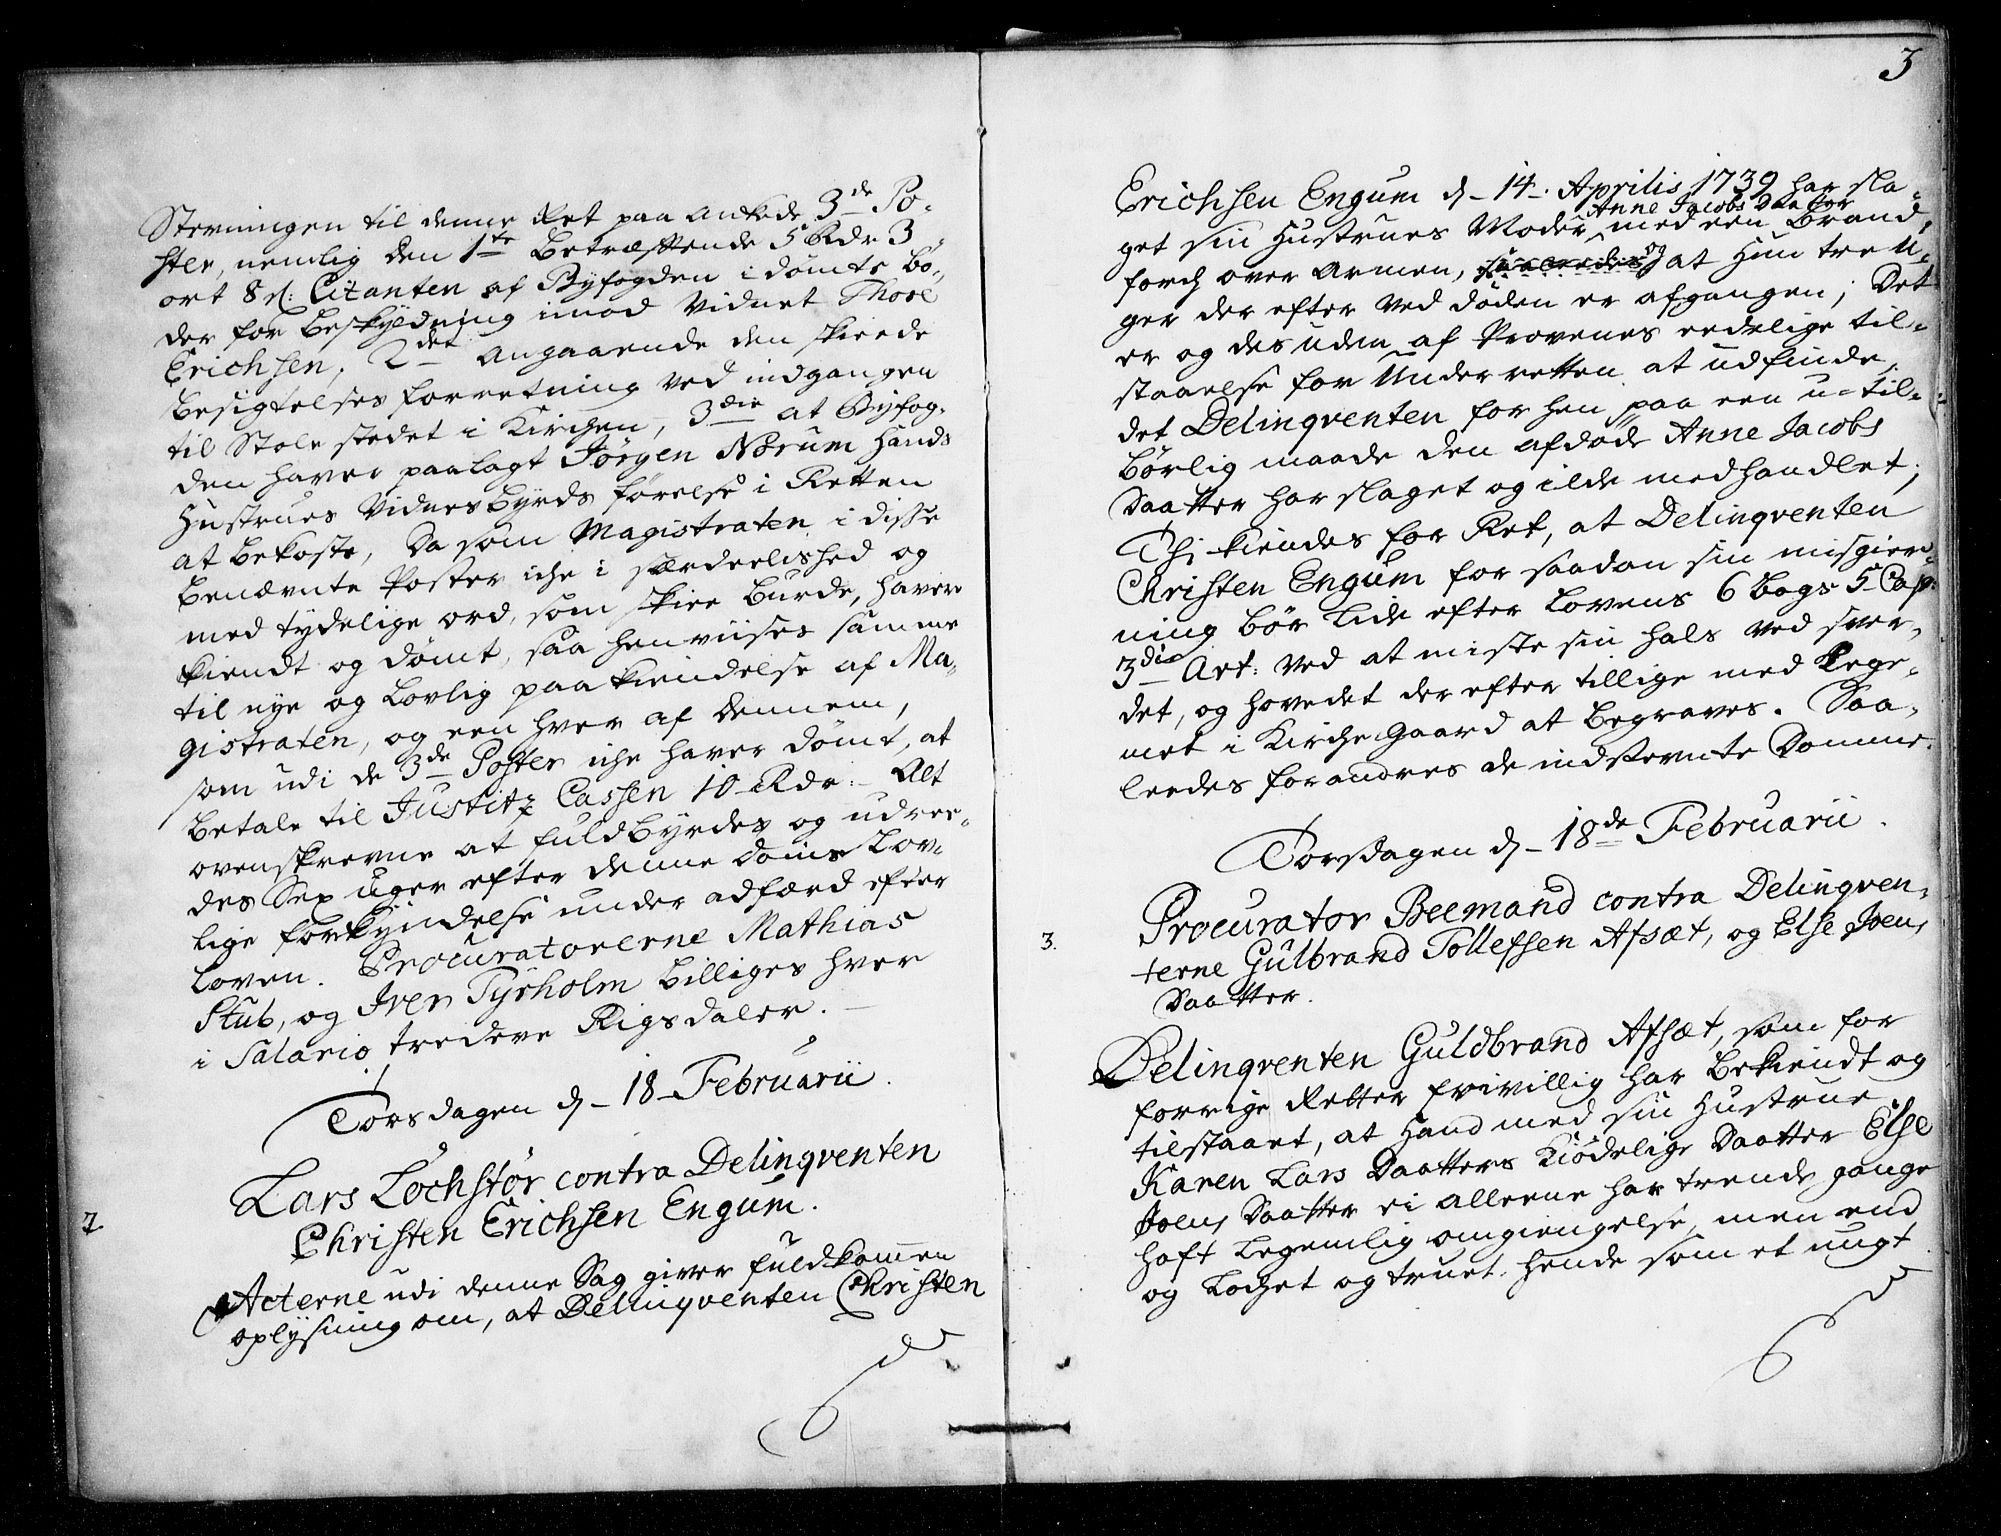 Stevningen til denne Ret paa ankede 3de Po-
ster, nemlig den 1te Betræffende 5 Rdr 3
ort 8 s: Citanten af Byfogden idømte Bø-
der for Beskyldning imod Vidnet Thore
Erichsen, 2det angaaende den skeede
Besigtelses forretning ved indgangen
til Stole stedet i Kirchen, 3die at Byfog-
den haver paalagt Jörgen Norum Hands
Hustrues Vidnesbyrds førelse i Retten
at bekoste, Da som Magistraten i disse
Benævnte Poster iche i særdeelished og
med tydelige ord, som skee burde, haver
kiendt og dømt, saa henviises samme
til nye og Lovlig paakiendelse af Ma-
gistraten, og een hver af dennem,
som udi de 3de Poster iche haver dømt, at
Betale til Justitz Cassen 10 Rdr:- Alt
ovenskrevne at fuldbyrdes og udree-
des Sex uger efter denne Doms Lov-
lige forkyndelse under adfærd efter
Loven. Procuratorerne Mathias
Stub, og Iver Tyrholm billiges hver
i Salario tredeve Rigsdaler.
Torsdagen d- 18- Februarii.
Lars Lochstør contra Delinqventen
Christen Erichsen Engum.
2.
Acterne udi denne Sag giver fuldkommen
oplysning om, at Delinqventen Christen
3
Erichsen Engum d- 14-. Aprilis 1739 har sla-
Anne Jacobs Daatter
get sin Hustrues Moder med een Brand-
ford over Armen, og at Hun tre U-
ger der efter ved døden er afgangen; Det
er og des uden af Provenes eedelige til-
staaelse for Underretten at udfinde,
det Delinqventen for hen paa een u-til-
børlig maade den afdøde Anne Jacobs
Daatter har slaget og ilde medhandlet;
Thi kiendes for Ret, at Delinqventen
Christen Engum for saadan sin misgier-
ning bør Lide efter Lovens 6 Bogs 5 Cap:
3die Art: ved at miste sin hals ved sver-
det, og hovedet der efter tillige med Lege-
met i Kirche Gaard at begraves. Saa-
leedes forandres de indstevnte Domme.
Torsdagen d- 18de Februarii.
3.
Procurator Beemand contra Delinqven-
terne Gulbrand Tollefsen Afsæt, og Else Joens
Daatter.
Delinqventen Guldbrand Afsæt, som for
forrige Retter frivillig har bekiendt og
tilstaaet, at Hand med sin Hustrue
Karen Lars Daatters Kiødelige Daatter Else
Joens Daatter ei alleene har trende gange
haft Legemlig omgiengelse, men end
og Locket og truet hende som et ungt